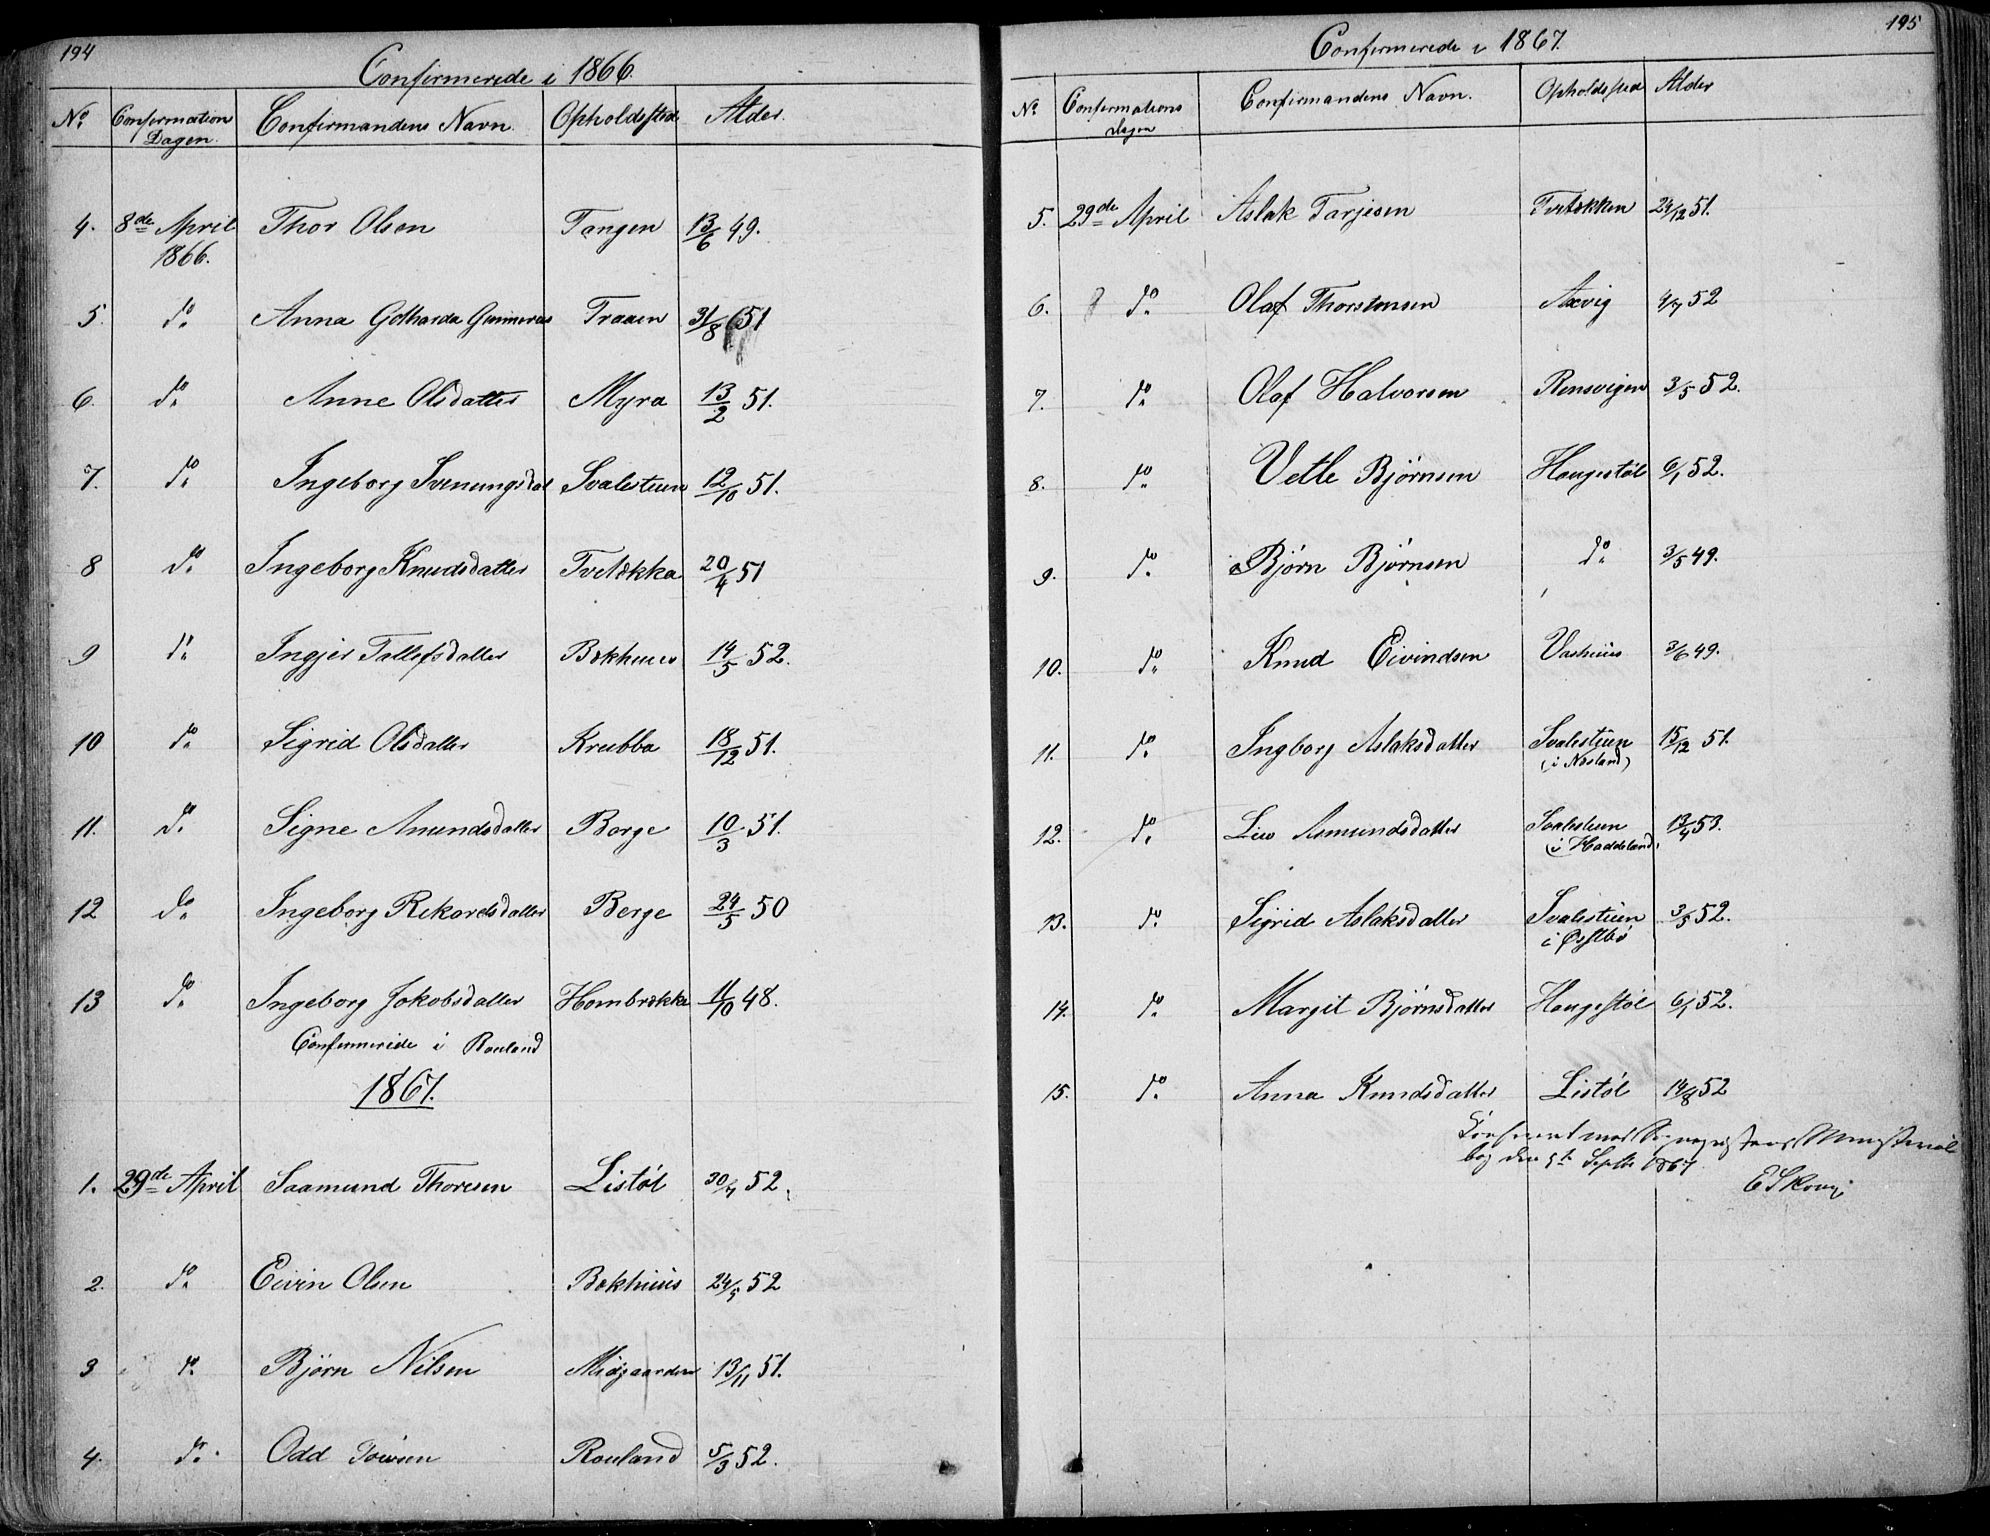 194
Confirmerede i 1866.
No. Confirmations Dagen. Confirmandens Navn. Opholdssted Alder.
4. 8de April 1866. Thor Olsen Tangen 13/6 49.
5. do Anna Gotharda Gunneras Traaen 31/8 51
6. do Anne Olsdatter Myra 13/2 51.
7. do Ingeborg Svenungsdat Svalestuen 12/10 51.
8 do Ingeborg Knudsdatter Tvetækka 20/4 51
9 do Ingjer Tallefsdatter Bækhuus 14/5 52.
10 do Sigrid Olsdatter Krubba 18/12 51.
11. do Signe Anundsdatter Borge 10/3 51.
12 do Ingeborg Rikardsdatter Berge 24/5 50
13 do Ingeborg Jokobsdatter Hombrækka 11/10 48.
Confirmerede i Rouland
1867.
1. 29de April Saamund Thoresen Listøl 30/4 52.
2. do Eivin Olsen Bækhuus 24/5 52
3 do Bjørn Nilsen Midgaarden 13/11 51.
4. do Odd Rouland 5/3 52.
195
Confirmerede i 1867.
No Confirmations dagen Confirmandens Navn. Opholdssted Alder
5. 29de April Aslak Tarjesen Tvetækken 24/12 51.
6. do Olaf Thorstensen Axvig 4/7 52
7. do Olaf Halvorsen Rensvigen 3/5 52.
8. do Vetle Bjørnsen Haugestøl 6/1 52.
9. do Bjørn Bjørnsen do 3/5 49.
10. do Knud Eivindsen Vashuus 3/6 49.
11. do Ingborg Aslaksdatter Svalestuen 15/12 51.
(i Næsland)
12. do Liv Asmundsdatter Svalestuen 13/4 53.
(i Haddeland)
13. do Sigrid Aslaksdatter Svalestuen 3/5 52.
i Østbø
14. do Margit Bjørnsdatter Haugestøl 6/1 52.
15. do Anna Knudsdatter Listøl 14/8 52
Conferert med Ministerial
bog den Septbr 1867.